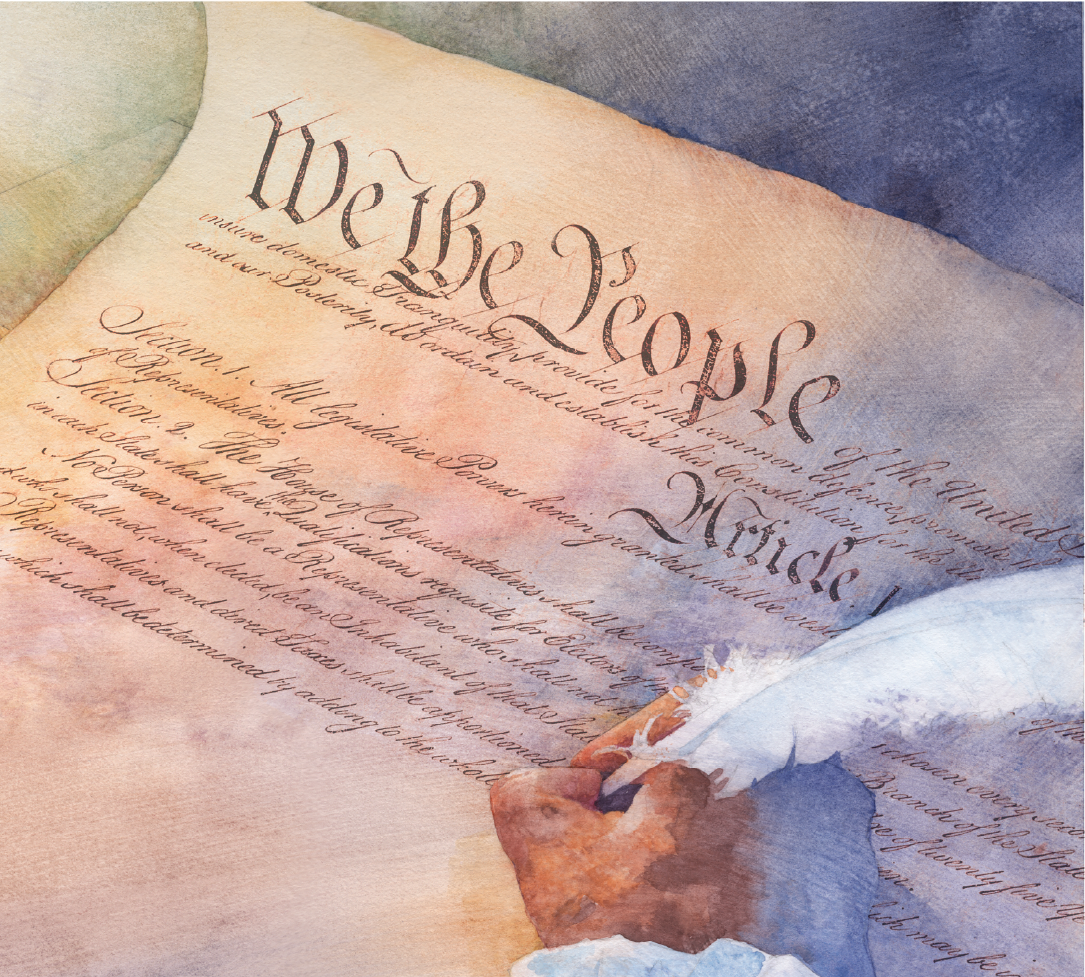 We the People
of the United
insure domestic Tranquility, provide for the common defence, promote
and our Posterity, do ordain and establish this Constitution for
Article. I
Section. 1. All legislative Powers herein granted shall be
of Representatives
Section. 2. The House of Representatives shall be
in each State shall have the Qualifications requisite for Electors of
No Person shall be a Representative who shall not
and who shall not, when elected, be an Inhabitant of that
Representatives and direct Taxes shall be apportioned
which shall be determined by adding to the whole
chosen every
Branch of the State
of twenty five
which may be